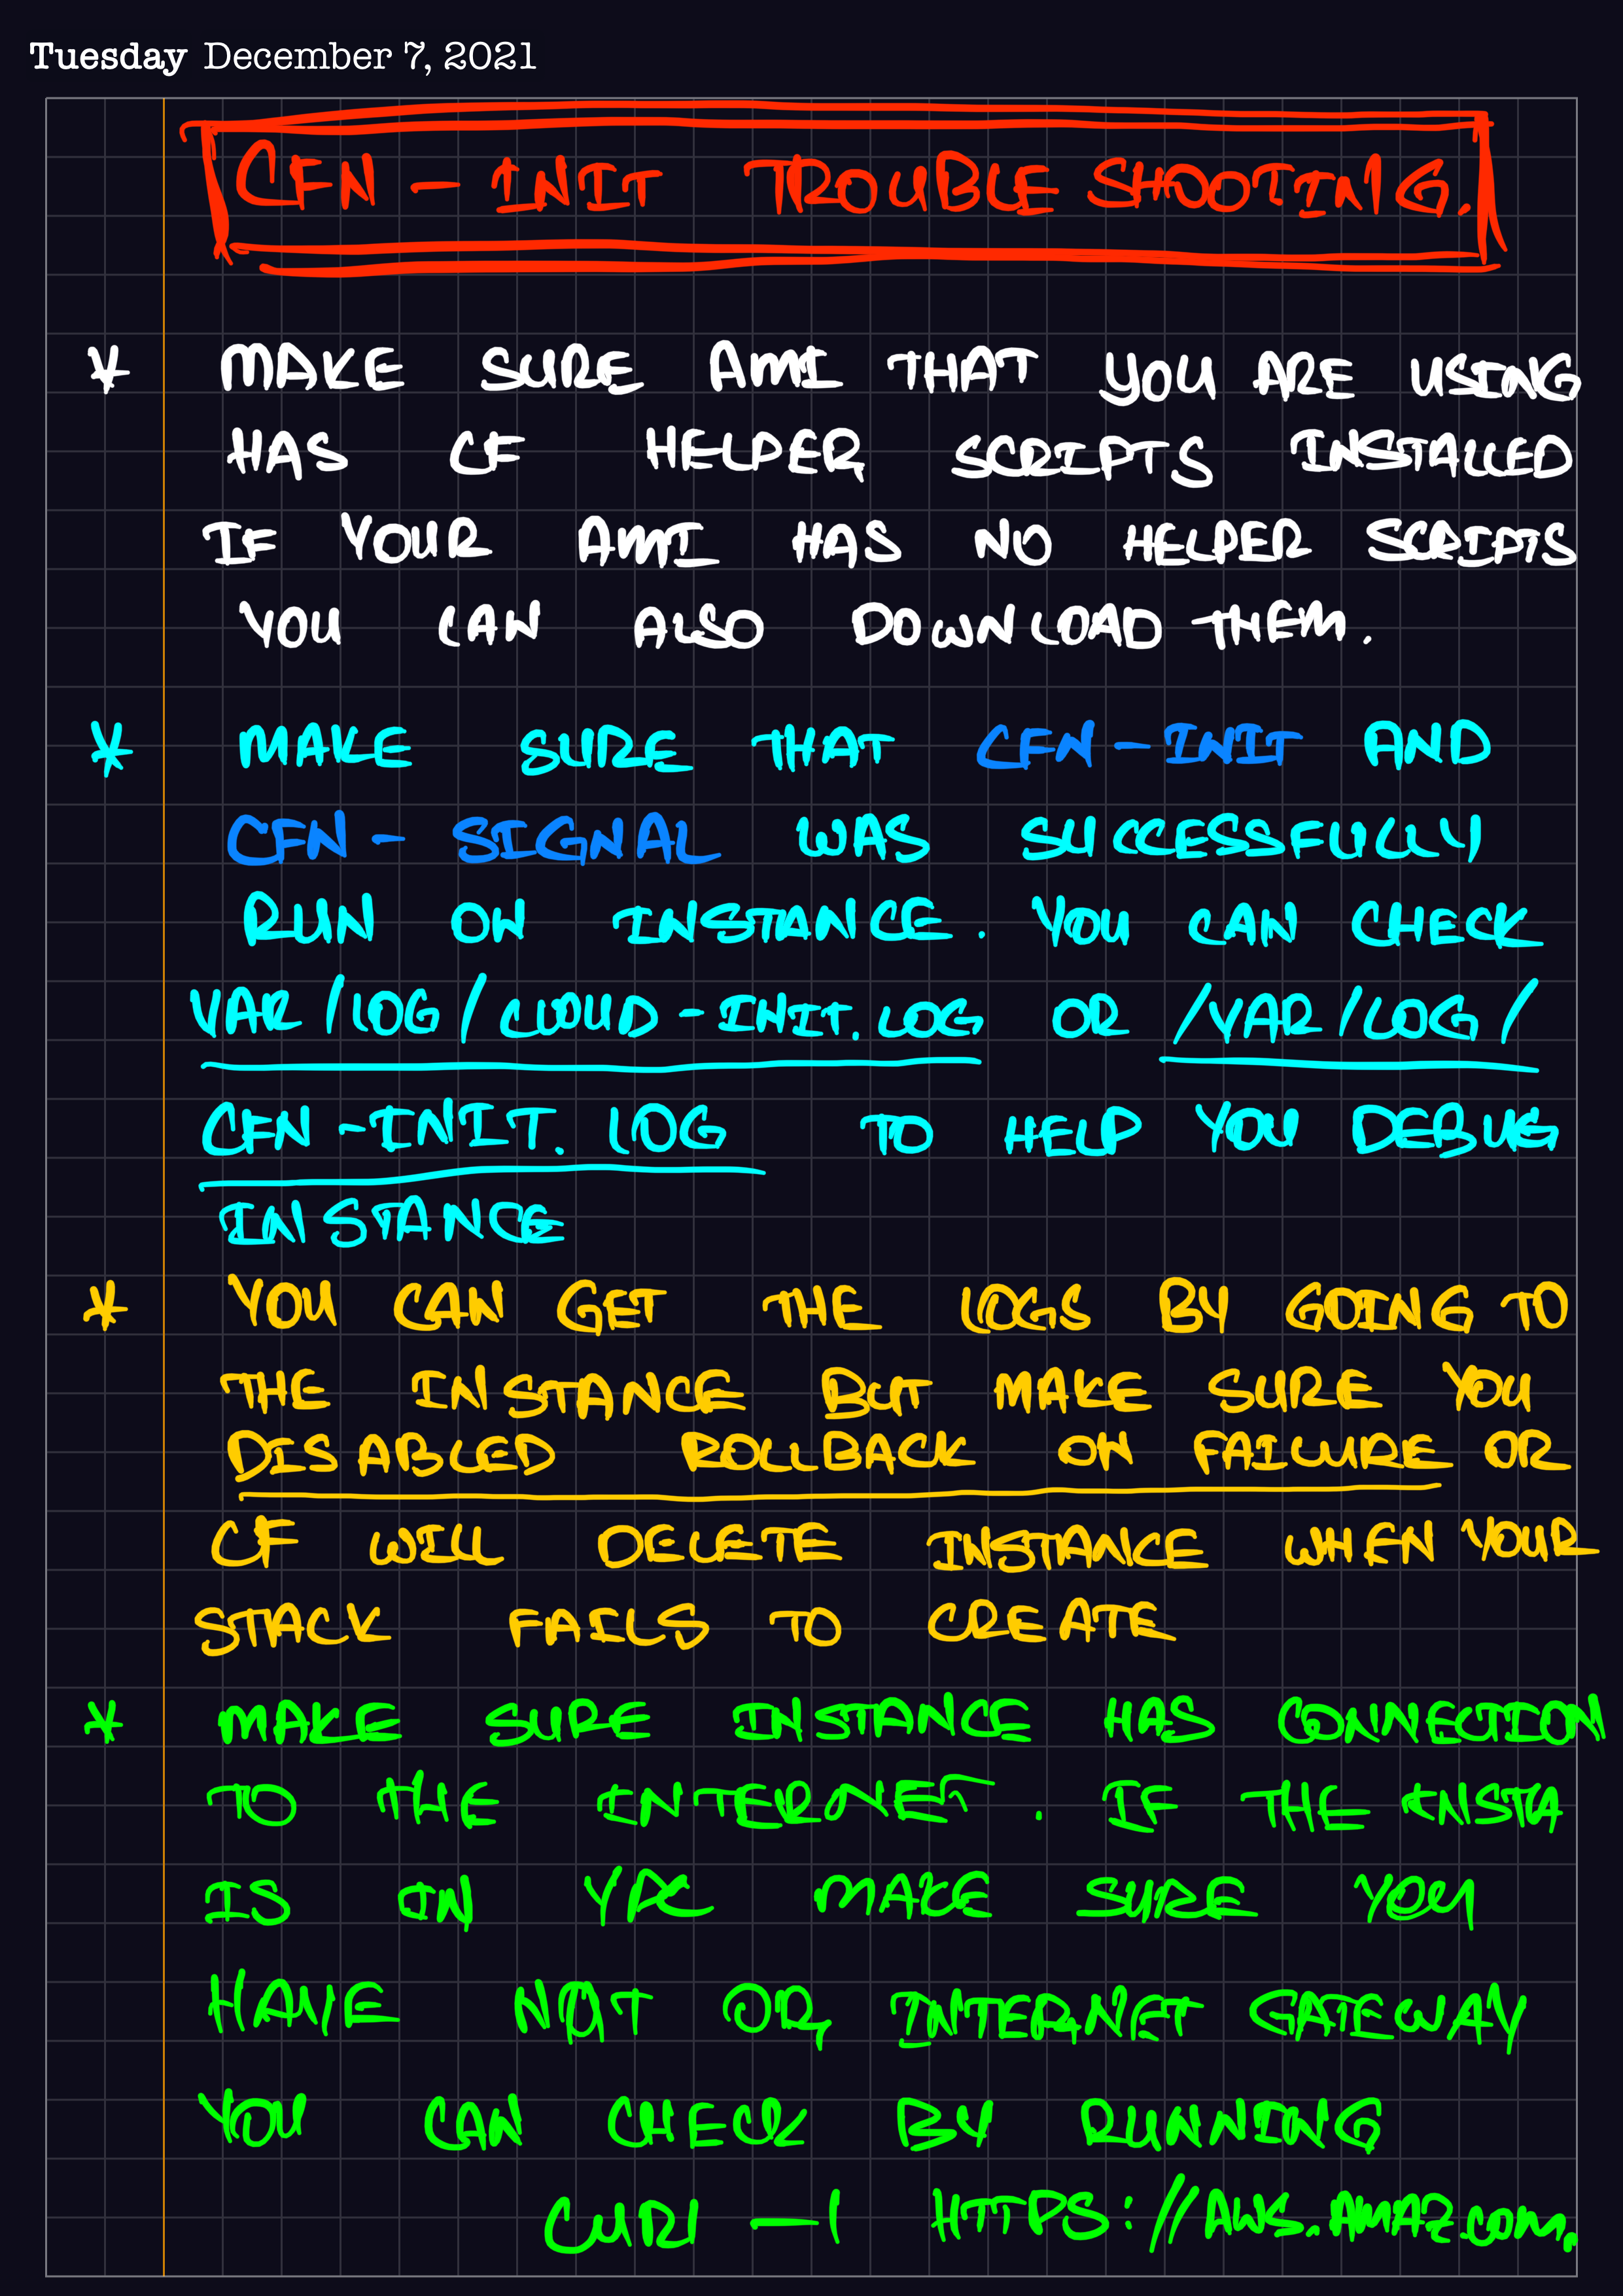 Tuesday December 7, 2021
CFN - INIT TROUBLE SHOOTING.
* MAKE SURE AMI THAT YOU ARE USING
HAS CF HELPER SCRIPTS INSTALLED
IF YOUR AMI HAS NO HELPER SCRIPTS
YOU CAN ALSO DOWNLOAD THEM.
* MAKE SURE THAT CFN - INIT AND
CFN - SIGNAL WAS SUCCESSFULLY
RUN ON INSTANCE. YOU CAN CHECK
VAR/LOG/CLOUD-INIT.LOG OR /VAR/LOG/
CFN-INIT.LOG TO HELP YOU DEBUG
INSTANCE
* YOU CAN GET THE LOGS BY GOING TO
THE INSTANCE BUT MAKE SURE YOU
DISABLED ROLLBACK ON FAILURE OR
CF WILL DELETE INSTANCE WHEN YOUR
STACK FAILS TO CREATE
* MAKE SURE INSTANCE HAS CONNECTION
TO THE INTERNET. IF THE INSTA
IS IN VPC MAKE SURE YOU
HAVE NAT OR INTERNET GATEWAY
YOU CAN CHECK BY RUNNING
CURl -I HTTPS://AWS.AMAZ.COM.